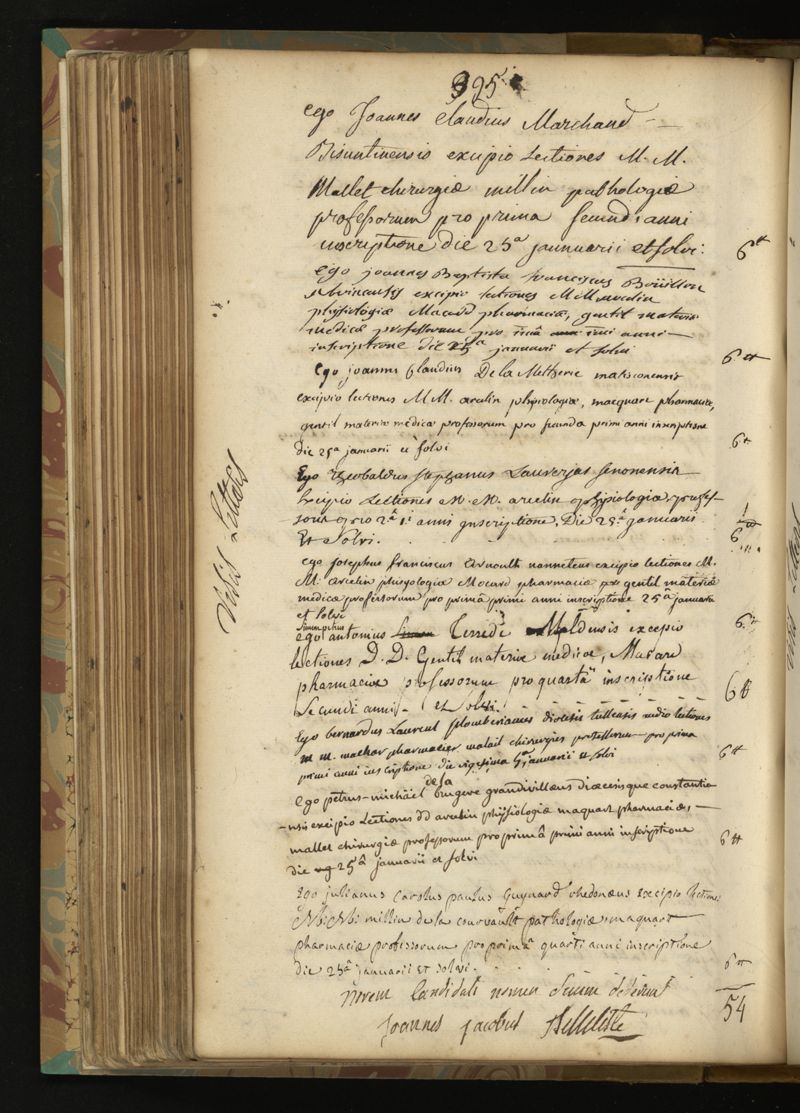 395
ego Joannes Claudius Marchand
Bisuntinensis excipio Lectiones M. M.
Mallet chirurgiæ millin pathologiæ
professorum pro prima secundi anni
inscriptione die 25ª januarii et solvi. 6tt
ego joannes Baptista franciscus
excipio lectiones M M arculin
physiologiæ Macard pharmaciæ, gentil materiæ
medicæ professorum pro anni
inscriptione die 25ª januarii et solvi 6tt
Ego joannes Claudius De la Metherie matisconensis
excipio lectiones M M. arculin physiologiæ, macquart pharmaciæ,
gentil materiæ medicæ professorum pro secunda primi anni inscriptione
die 25ª januarii et solvi 6tt
Ego theobaldus stephanus Lauverjas senonensis
Excipio Lectiones M. M. arcelin physiologiæ profes-
sorum pro 2ª 1i anni inscriptione. Die 25ª januarii
Et Solvi. 6
ego josephus franciscus arnoult nanneteus excipio lectiones M.
M. arcelin physyologiæ Mocard pharmaciæ gentil materiæ
medicæ professorum pro primâ primi anni inscriptione 25ª januarii
et solvi 6tt
ego antonius terrede Meldensis excepio
lectiones D. D. Gentil materiæ medicæ, Macard
pharmaciæ professorum pro quartâ inscriptione
Secundi anni et solvi. 6tt
Ego bernardus Laurent plomberianus diocesis tullensis audio lectiones
m m. mackar pharmaciæ malait chirurgies professorum pro prima
primi anni inscriptione die januarii et solvi 6tt
de la
ego petrus-michaël brugere grandivillæus diœcesisque constantia
-nsis excipio Lectiones dd arculin physiologiæ maquart pharmaciæ,
mallet chirurgiæ professorum pro primâ primi anni inscriptione
die 25â januarii et solvi 6tt
Ego julianus carolus paulus Guynard rhedonæus excipio lectiones
M. M. millin de la courvault pathologiæ maquart
pharmaciæ professorum pro primâ quarti anni inscriptione
die 25ª januarii et solvi. 6tt
novem Candidati nomen Suum dederunt 54
Joannes jacobus Belleteste